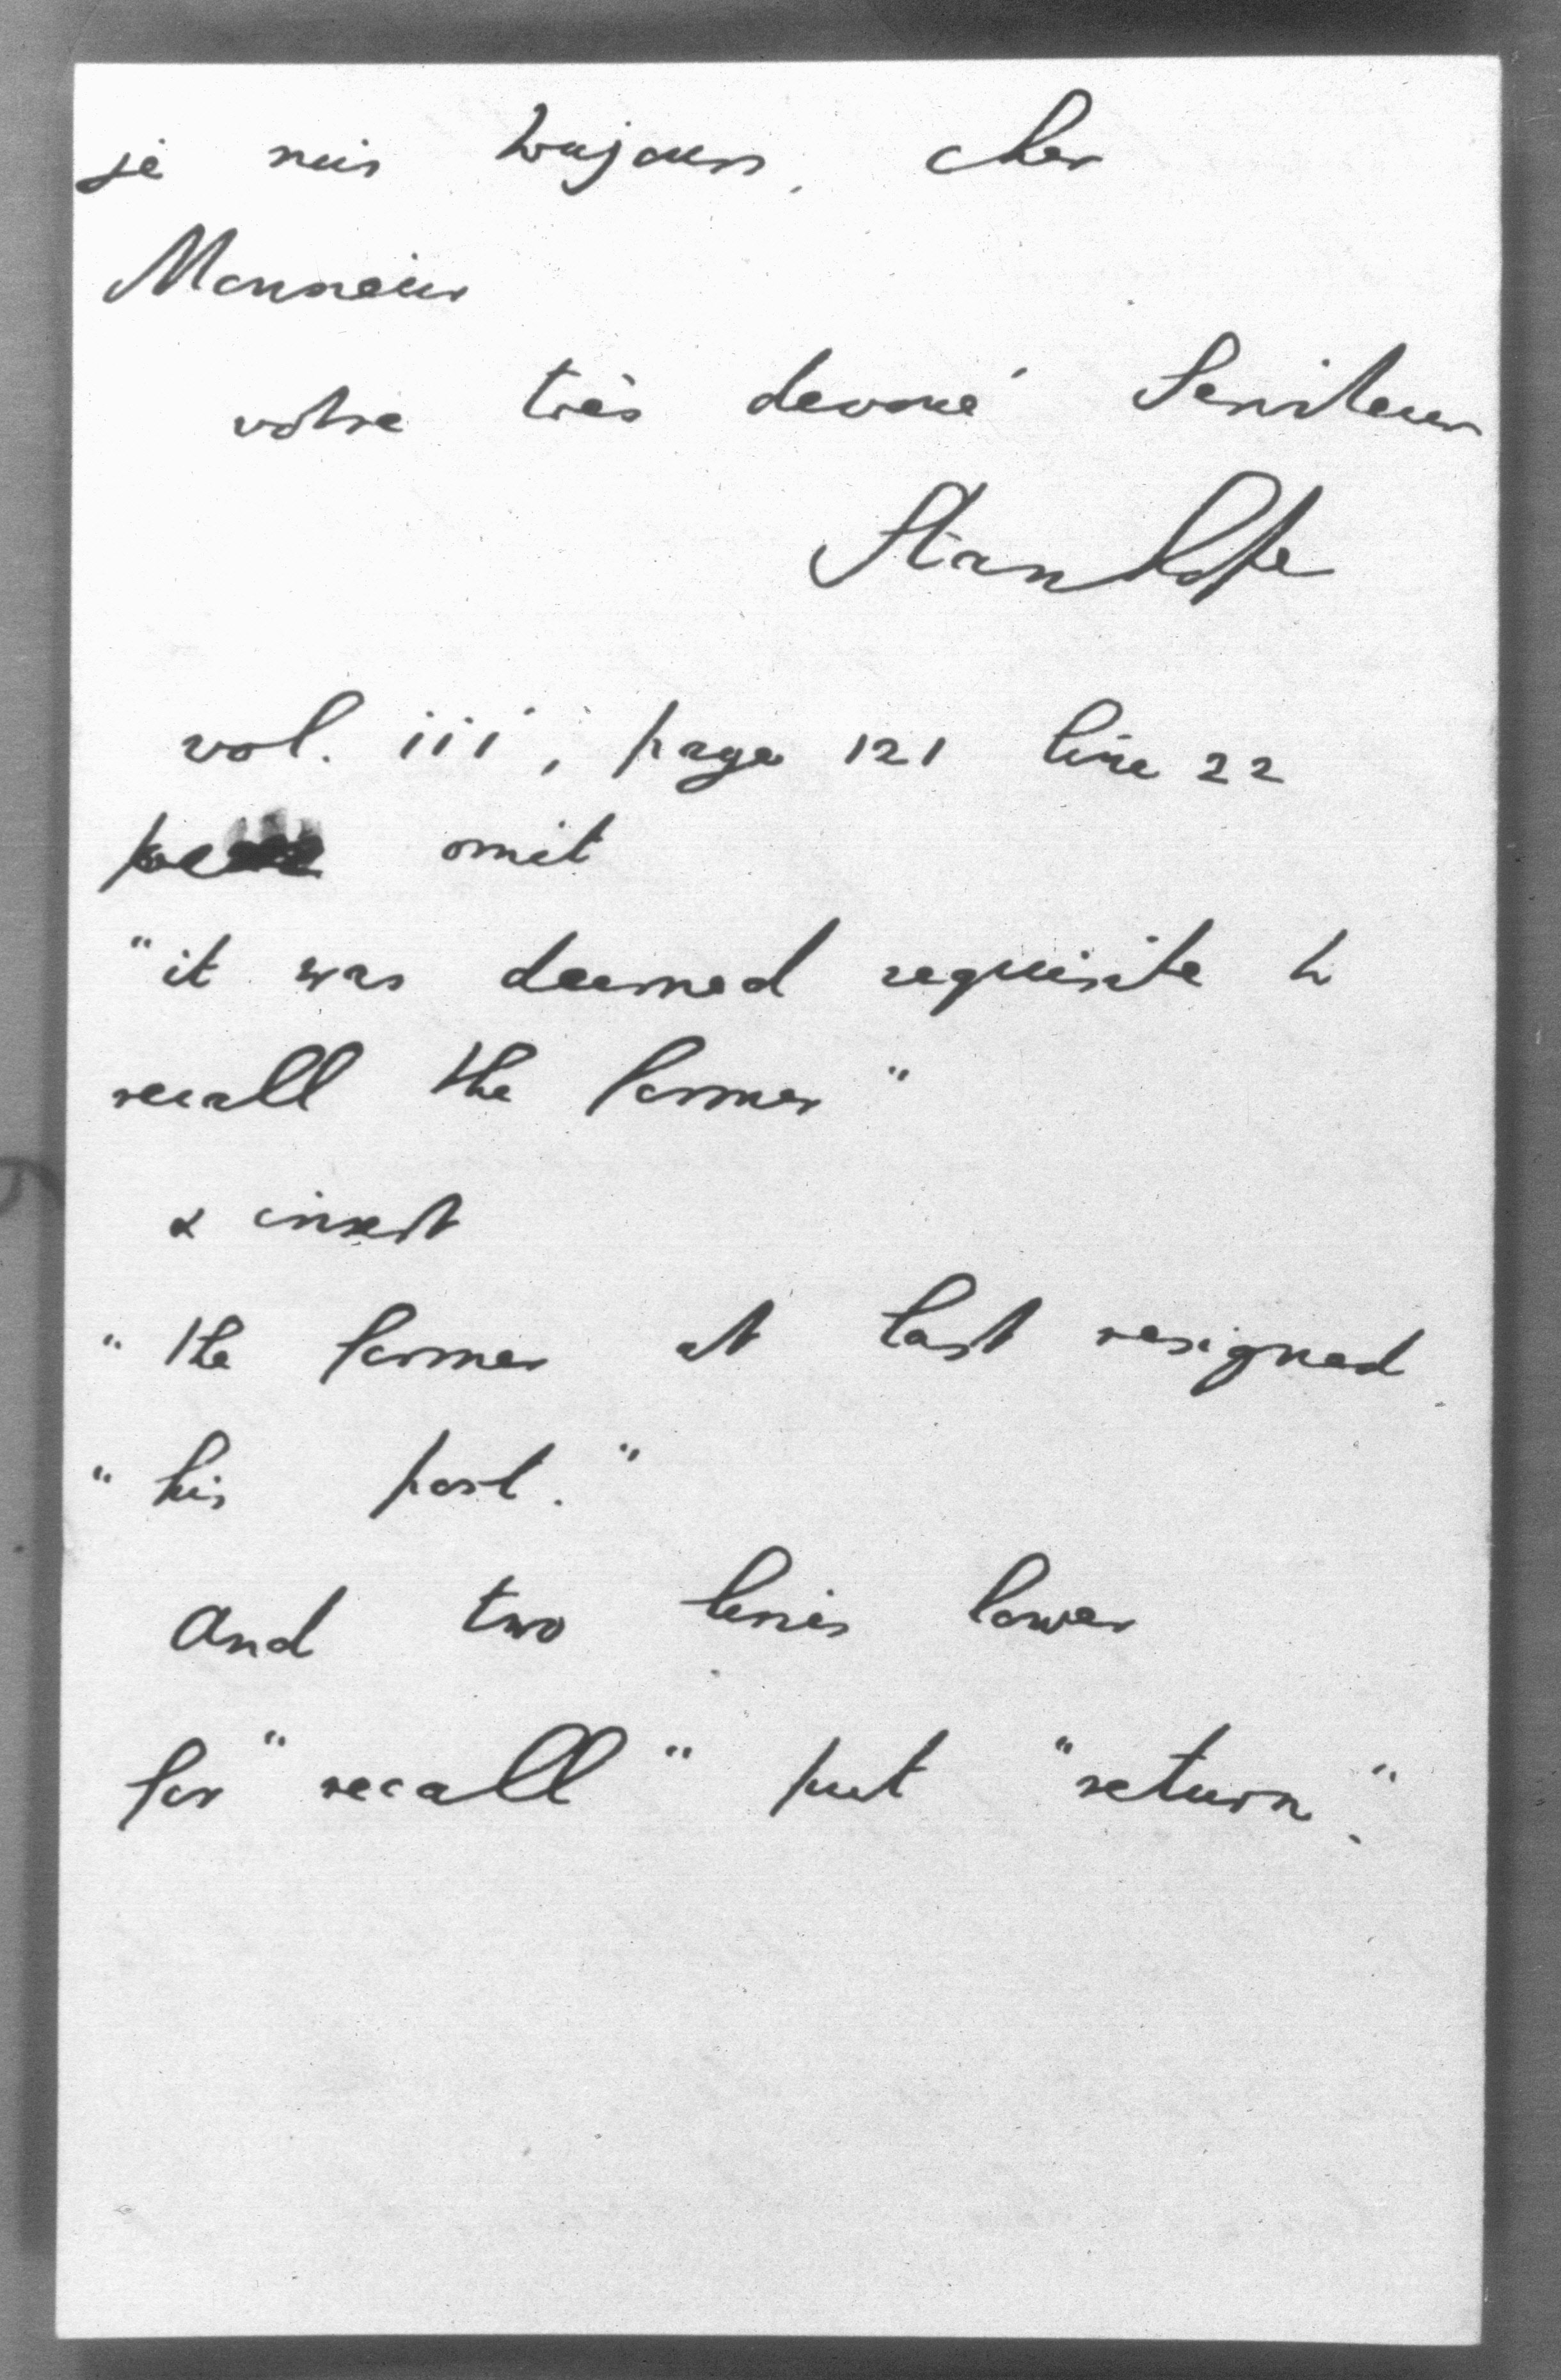 je suis toujours, cher
Monsieur
votre très devoué Serviteur
Stanhope
vol. iii, page 121 line 22
omit
"it was deemed requisite to
recall the former"
& insert
"the former at last resigned
"his post."
And two lines lower
for "recall" put "return".